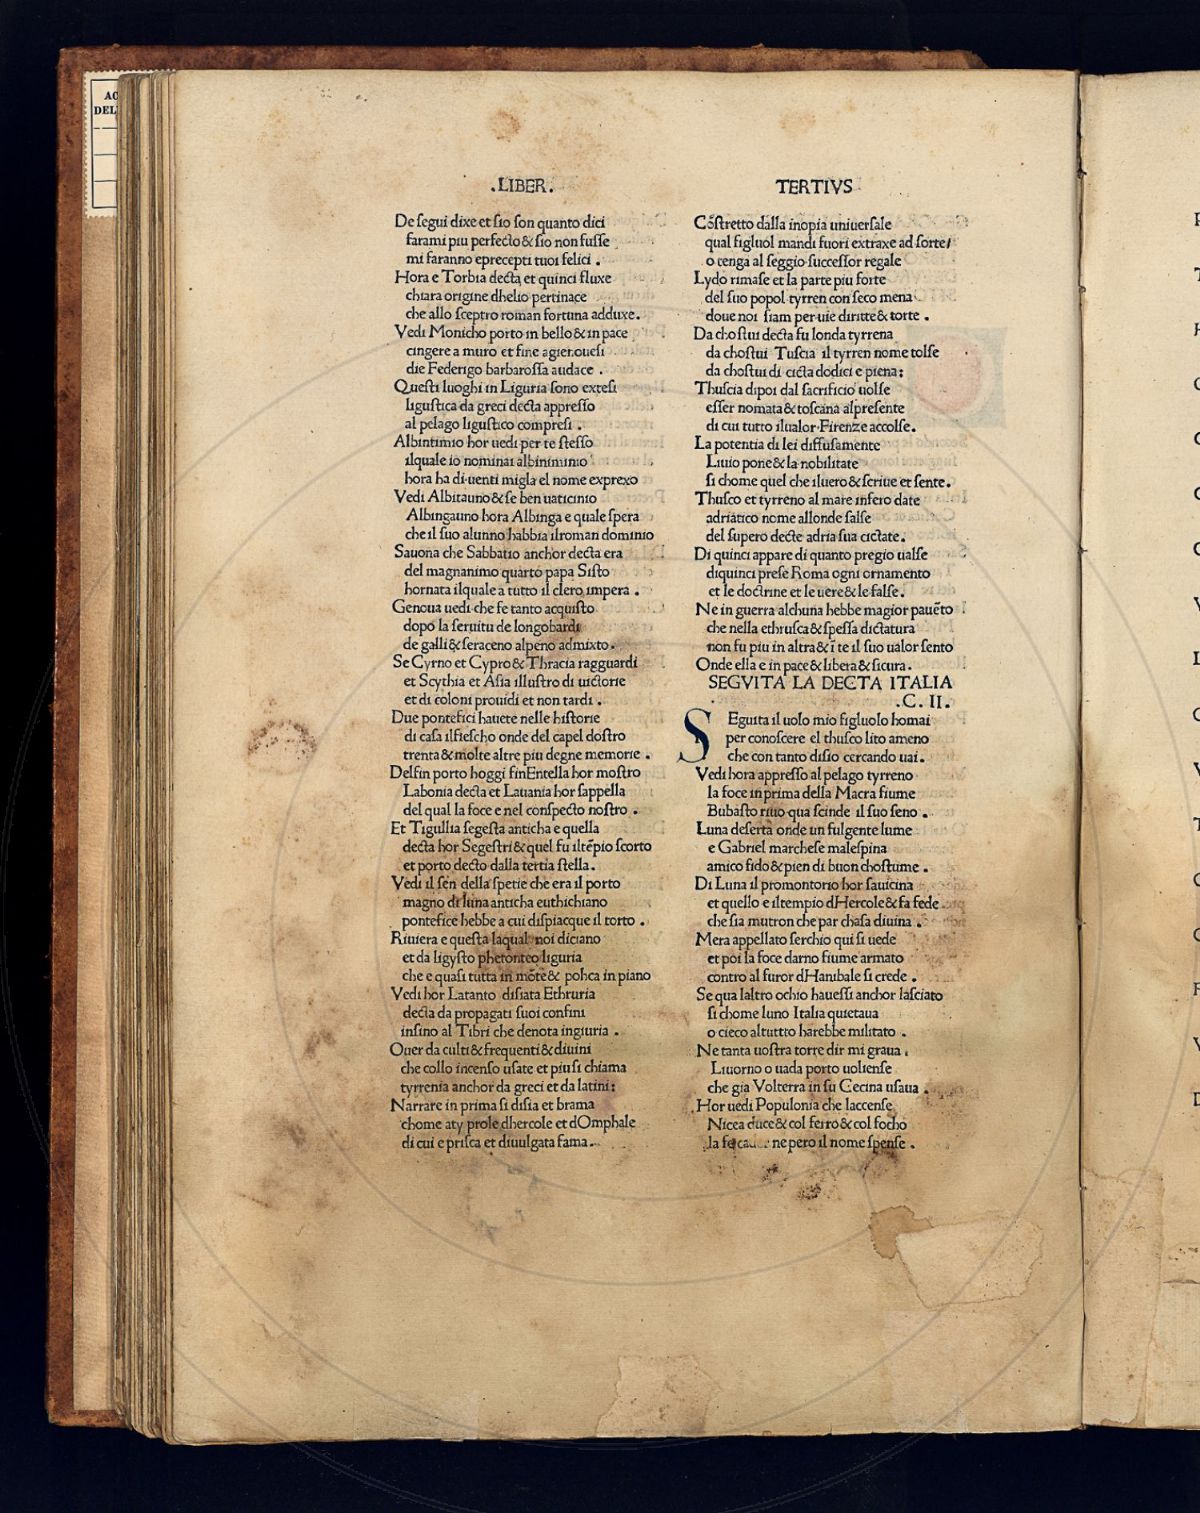 .LIBER.
De segui dixe et sio son quanto dici
farami piu perfecto & sio non fusse
mi faranno eprecepti tuoi felici .
Hora e Torbia decta et quinci fluxe
chiara origine dhelio pertinace
che allo sceptro roman fortuna adduxe.
Vedi Monicho porto in bello & in pace
cingere a muro et fine agienouesi
die Federigo barbarossa audace .
Questi luoghi in Liguria sono extesi
ligustica da greci decta appresso
al pelago ligustico compresi .
Albintimio hor uedi per te stesso
ilquale io nominai albinimimio
hora ha di uenti migla el nome exprexo
Vedi Albitauno & se ben uaticinio
Albingauno hora Albinga e quale spera
che il suo alunno habbia ilroman dominio
Sauona che Sabbatio anchor decta era
del magnanimo quarto papa Sisto
hornata ilquale a tutto il clero impera .
Genoua uedi che fe tanto acquisto
dopo la seruitu de longobardi
de galli & seraceno alpeno admixto .
Se Cyrno et Cypro & Thracia ragguardi
et Scythia et Asia illustro di uictorie
et di coloni prouidi et non tardi .
Due pontefici hauete nelle historie
di casa ilfiescho onde del capel dostro
trenta & molte altre piu degne memorie .
Delfin porto hoggi finEntella hor mostro
Labonia decta et Lauania hor sappella
del qual la foce e nel conspecto nostro .
Et Tigullia segesta anticha e quella
decta hor Segestri & quel fu iltẽpio scorto
et porto decto dalla tertia stella .
Vedi il sen della spetie che era il porto
magno di luna anticha euthichiano
pontefice hebbe a cui dispiacque il torto .
Riuiera e questa laqual noi diciano
et da ligysto phetonteo liguria
che e quasi tutta in mõte & pocha in piano
Vedi hor Latanto disiata Ethruria
decta da propagati suoi confini
insino al Tibri che denota ingiuria .
Ouer da culti & frequenti & diuini
che collo incenso usate et piusi chiama
tyrrenia anchor da greci et da latini :
Narrare in prima si disia et brama
chome aty prole dhercole et dOmphale
di cui e prisca et diuulgata fama .
TERTIVS
Cõstretto dalla inopia uniuersale
qual figluol mandi fuori extraxe ad sorte /
o tenga al seggio successor regale
Lydo rimase et la parte piu forte
del suo popol tyrren con seco mena
doue noi siam per uie diritte & torte .
Da chostui decta fu londa tyrrena
da chostui Tuscia il tyrren nome tolse
da chostui di cicta dodici e piena :
Thuscia dipoi dal sacrificio uolse
esser nomata & toscana alpresente
di cui tutto ilualor Firenze accolse .
La potentia di lei diffusamente
Liuio pone & la nobilitate
si chome quel che iluero & scriue et sente .
Thusco et tyrreno al mare infero date
adriatico nome allonde salse
del supero decte adria sua cictate .
Di quinci appare di quanto pregio ualse
diquinci prese Roma ogni ornamento
et le doctrine et le uere & le false .
Ne in guerra alchuna hebbe magior pauẽto
che nella ethrusca & spessa dictatura
non fu piu in altra & ĩ te il suo ualor sento
Onde ella e in pace & libera & sicura .
SEGVITA LA DECTA ITALIA
.C. II.
SEguita il uolo mio figluolo homai
per conoscere el thusco lito ameno
che con tanto disio cercando uai .
Vedi hora appresso al pelago tyrreno
la foce inprima della Macra fiume
Bubasto riuo qua scinde il suo seno .
Luna deserta onde un fulgente lume
e Gabriel marchese malespina
amico fido & pien di buon chostume .
Di Luna il promontorio hor sauicina
et quello e iltempio dHercole & fa fede
che sia mutron che par chasa diuina .
Mera appellato serchio qui si uede
et poi la foce darno fiume armato
contro al furor dHanibale si crede .
Se qua laltro ochio hauessi anchor lasciato
si chome luno Italia quietaua
o cieco altutto harebbe militato .
Ne tanta uostra torre dir mi graua .
Liuorno o uada porto uoliense
che gia Volterra in su Cecina usaua .
Hor uedi Populonia che laccense
Nicea duce & col ferro & col focho
la fe ne pero il nome spense .